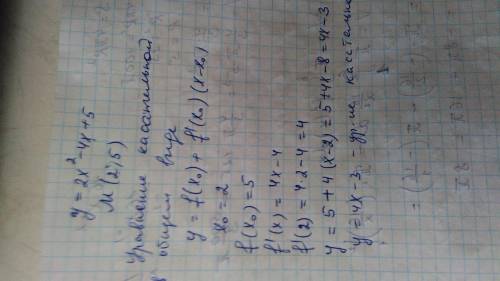 y = 2x² - 4x + 5
M (2; 5)
Уравнение касательной
в общем виде
y = f(x₀) + f'(x₀)(x - x₀)
x₀ = 2
f(x₀) = 5
f'(x) = 4x - 4
f'(2) = 4·2 - 4 = 4
y = 5 + 4(x - 2) = 5 + 4x - 8 = 4x - 3
y = 4x - 3 - ур-ие касательной